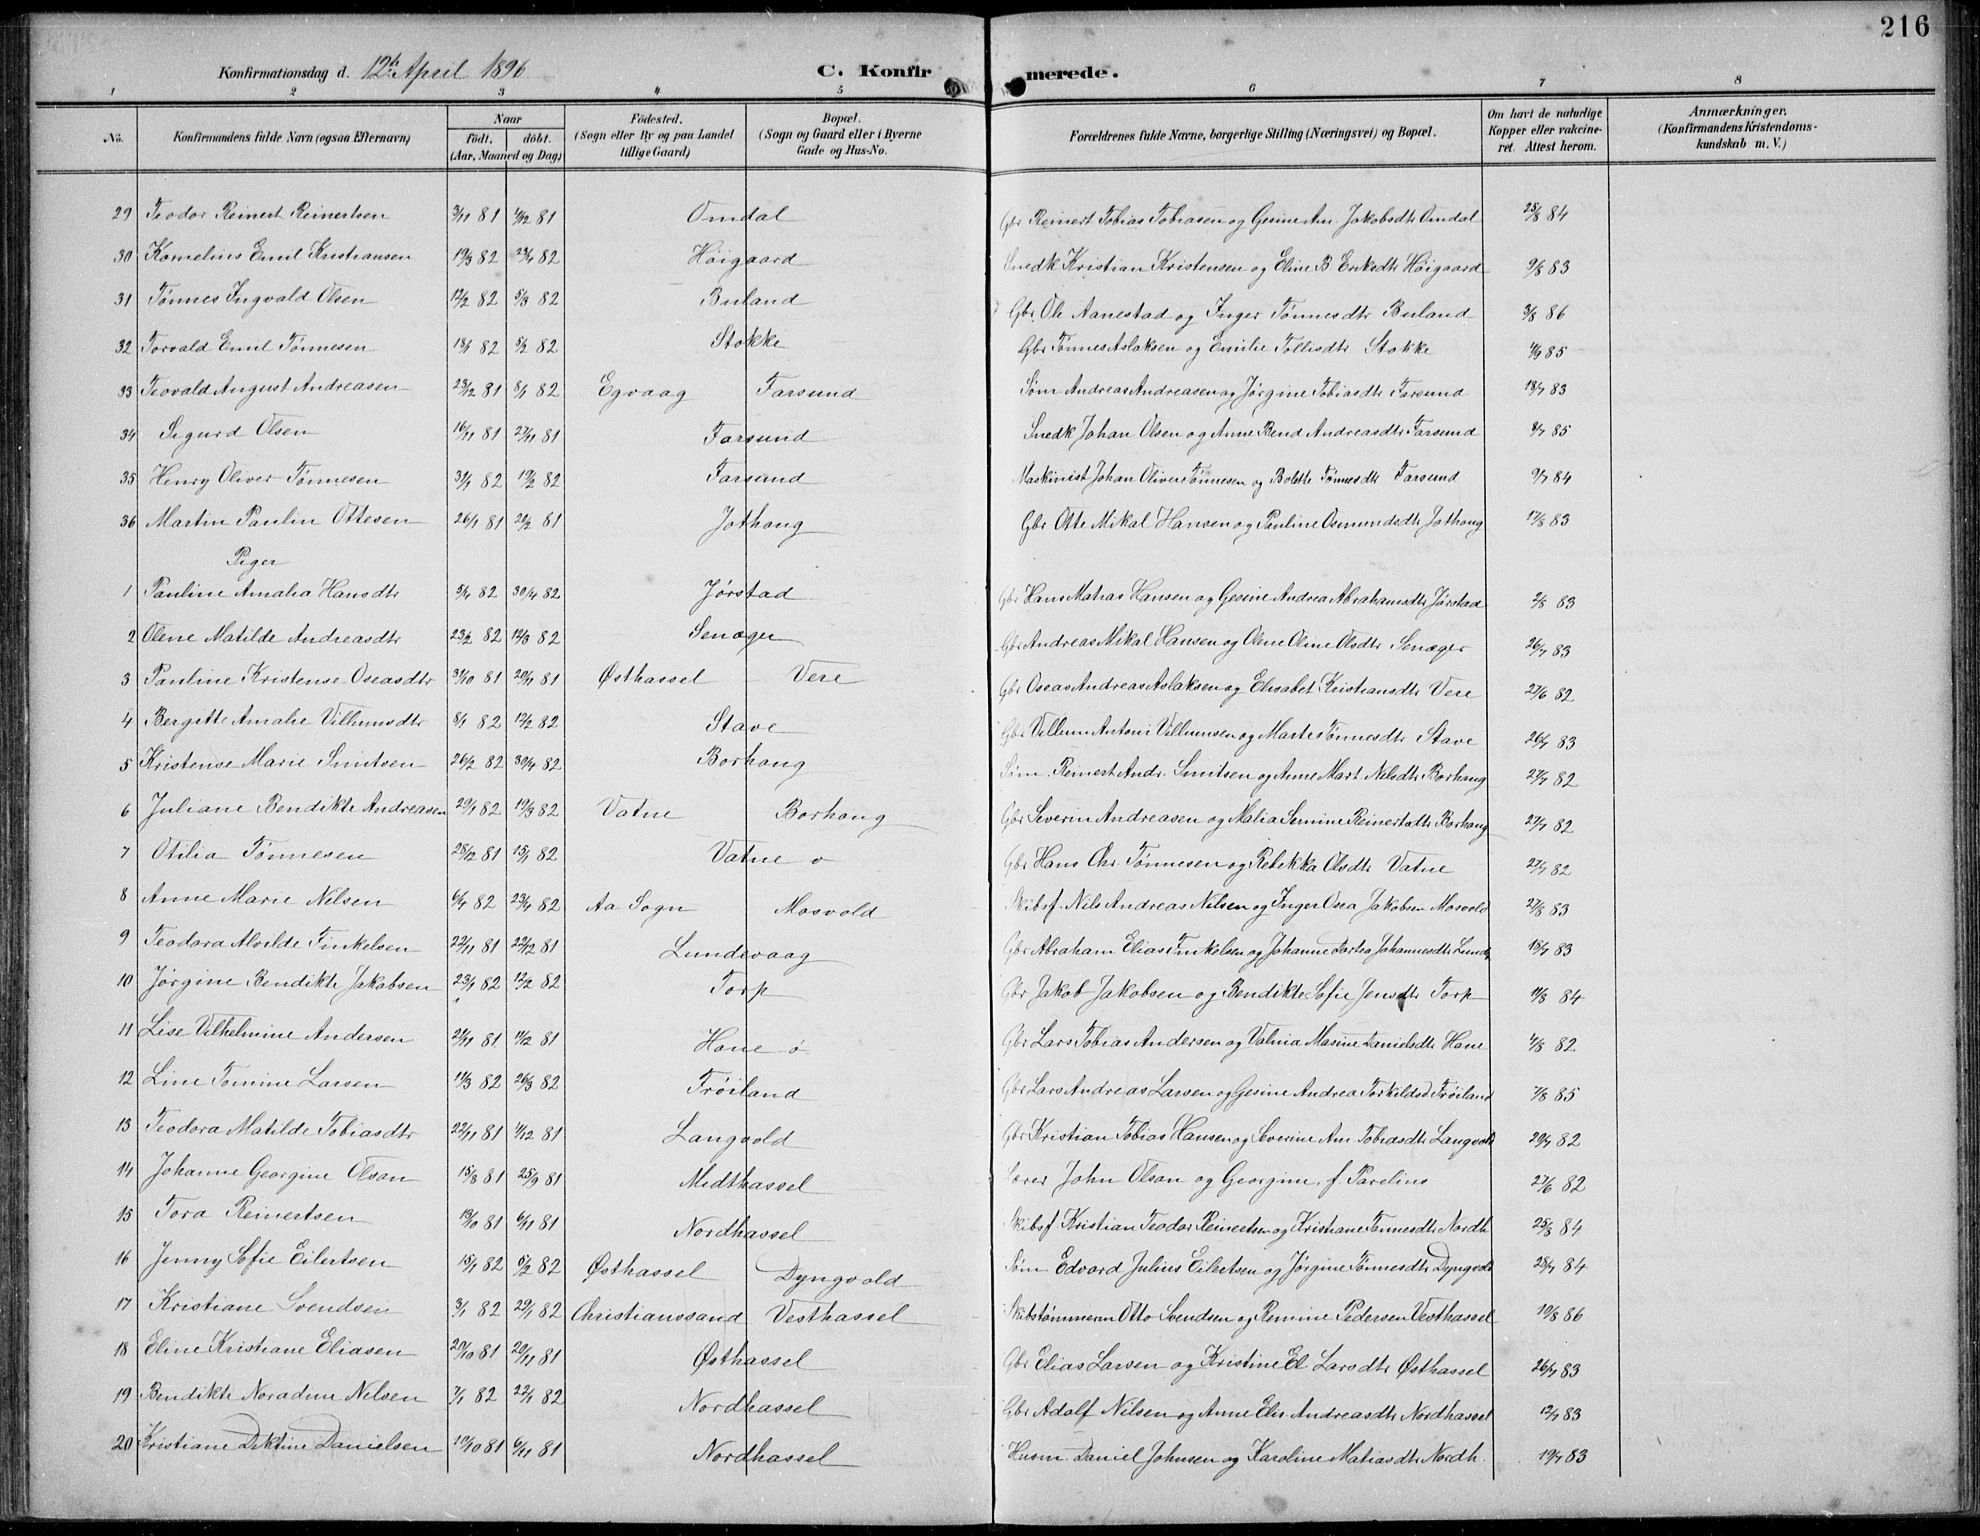 216
Konfirmationsdag d. 12te April 1896 C. Konfirmerede.
1 2 3 4 5 6 7 8
No. Konfirmandens fulde Navn (ogsaa Efternavn) Naar födt. döbt. (Aar, Maaned og Dag) Födested. (Sogn eller By og paa Landet tillige Gaard) Bopæl. (Sogn og Gaard eller i Byerne Gade og Hus-No. Forældrenes fulde Navne, borgerlige Stilling (Næringsvei) og Bopæl. Om havt de naturlige Kopper eller vakcineret. Attest herom. Anmærkninger. (Konfirmandens Kristendomskundskab m. V.)
29 Teodor Reinert Reinertsen 3/11 81 4/12 81 Omdal Gbr Reinert Tobias Tobiasen og Gesine An. Jakobsdtr Omdal 25/8 84
30 Kornelius Emil Kristiansen 19/3 82 23/4 82 Höigaard Snedk Kristian Kristensen og Eline B. Eriksdtr Höigaard 9/8 83
31 Tønnes Ingvald Olsen 12/2 82 5/3 82 Buland Gbr. Ole Aanestad og Inger Tønnesdtr Buland 3/8 86
32 Torvald Emil Tönnesen 18/1 82 5/2 82 Stokke Gbr Tønnes Aslaksen og Emilie Tollisdtr Stokke 4/9 85
33 Teovald August Andreasen 23/12 81 8/1 82 Egvaag Farsund Søm Andreas Andreasen og Jörgine Tobiasdtr Farsund 18/7 83
34 Sigurd Olsen 16/11 81 27/11 81 Farsund Snedk Johan Olsen og Anne Bend Andreasdtr Farsund 8/7 85
35 Henry Oliver Tönnesen 31/1 82 19/2 82 Farsund Maskinist Johan Oliver Tönnesen og Bolette Tönnesdtr Farsund 9/7 84
36 Martin Paulin Ottesen 26/1 81 20/2 81 Jøthaug Gbr Otte Mikal Hansen og Pauline Osmundsdtr Jøthaug 17/8 83
Piger
1 Pauline Amalia Hansdtr 5/4 82 30/4 82 Jørstad Gbr Hans Matias Hansen og Gesine Andrea Abrahamsdtr Jørstad 2/8 83
2 Olene Matilde Andreasdtr 23/2 82 12/3 82 Senæger Gbr Andreas Mikal Hansen og Olene Oline Olsdtr Senæger 26/7 83
3 Pauline Kristense Oseasdtr 31/10 81 20/11 81 Østhassel Vere Gbr Oseas Andreas Aslaksen og Elisabet Kristiansdtr Vere 27/6 82
4 Bergitte Amalie Villumsdtr 8/1 82 12/2 82 Stave Gbr Villum Antoni Villumsen og Marte Tönnesdtr Stave 26/7 83
5 Kristense Marie Smitsen 26/2 82 30/4 82 Borhaug Søm. Reinert Andr. Smitsen og Anne Mart. Nelsdtr Borhaug 27/7 82
6 Juliane Bendikte Andreasen 29/1 82 19/3 82 Vatne Borhaug Gbr Severin Andreasen og Malia Semine Reinertsdtr Borhaug 27/7 82
7 Otilia Tönnesen 28/12 81 15/1 82 Vatne ø Gbr Hans Chr. Tönnesen og Rebekka Olsdtr Vatne 27/7 82
8 Anne Marie Nilsen 6/4 82 23/4 82 Aa Sogn Mosvold Skibsf. Nils Andreas Nilsen og Inger Osea Jakobsen Mosvold 27/8 83
9 Teodora Alvilde Finkelsen 22/11 81 22/12 81 Lundevaag Gbr Abraham Elias Finkelsen og Johanne Dortea Johannesdtr Lunde 18/7 83
10 Jörgine Bendikte Jakobsen 23/1 82 12/2 82 Torp Gbr Jakob Jakobsen og Bendikte Sofie Jensdtr Torp 11/8 84
11 Lise Vilhelmine Andersen 21/11 81 11/12 81 Hane ø Gbr Lars Tobias Andersen og Valnia Masine Danielsdtr Hane 4/8 82
12 Line Tomine Larsen 11/3 82 26/3 82 Tröiland Gbr Lars Andreas Larsen og Gesine Andrea Torkildsd Tröiland 7/8 85
13 Teodora Matilde Tobiasdtr 22/11 81 4/12 81 Langvold Gbr Kristian Tobias Hansen og Severine An. Tobiasdtr Langvold 29/7 82
14 Johanne Georgine Olson 15/8 81 25/9 81 Midthassel Lærer John Olson og Georgine f. Parelius 27/6 82
15 Tora Reinertsen 19/10 81 6/11 81 Nordhassel Skibsf Kristian Teodor Reinertsen og Kristiane Tønnesdtr Nordh 25/8 84
16 Jenny Sofie Eilertsen 15/1 82 5/2 82 Østhassel Dyngvold Søm Edvard Julius Eilertsen og Jørgine Tønnesdtr Dyngvold 28/7 84
17 Kristiane Svendsen 3/1 82 29/1 82 Christianssand Vesthassel Skibstømmerm Otto Svendsen og Remine Pedersen Vesthassel 10/8 86
18 Eline Kristiane Eliasen 20/10 81 20/11 81 Østhassel Gbr Elias Larsen og Kristine El. Larsdtr Østhassel 26/7 83
19 Bendikte Noradine Nilsen 7/1 82 22/1 82 Nordhassel Gbr Adolf Nilsen og Anne Elis. Andreasdtr Nordhassel 12/7 83
20 Kristiane Diktine Danielsen 19/10 81 6/11 81 Nordhassel Husm. Daniel Johnsen og Karoline Matiasdtr Nordh. 19/7 83